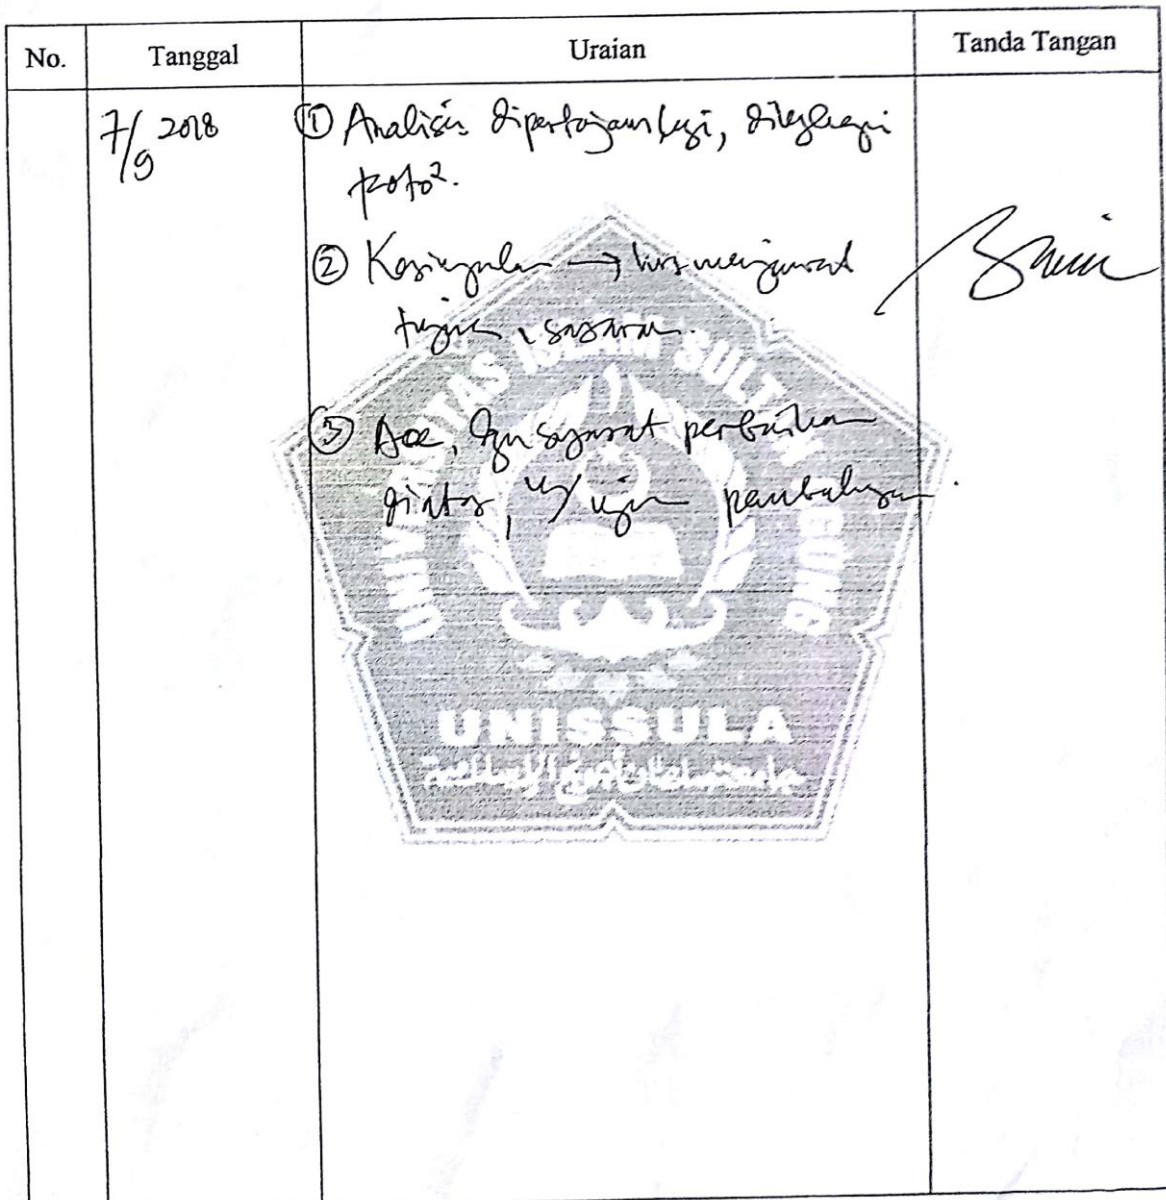 No. Tanggal Uraian Tanda Tangan
7/9 2018 ① Analisis dipertajam lagi, dilengkapi
foto².
② Kesimpulan → hrs menjawab
tujuan, sasaran.
③ Acc, dgn syarat perbaikan
diatas, u/ ujian pembahasan.
UNIVERSITAS ISLAM SULTAN AGUNG
UNISSULA
جامعة سلطان أجونج الإسلامية